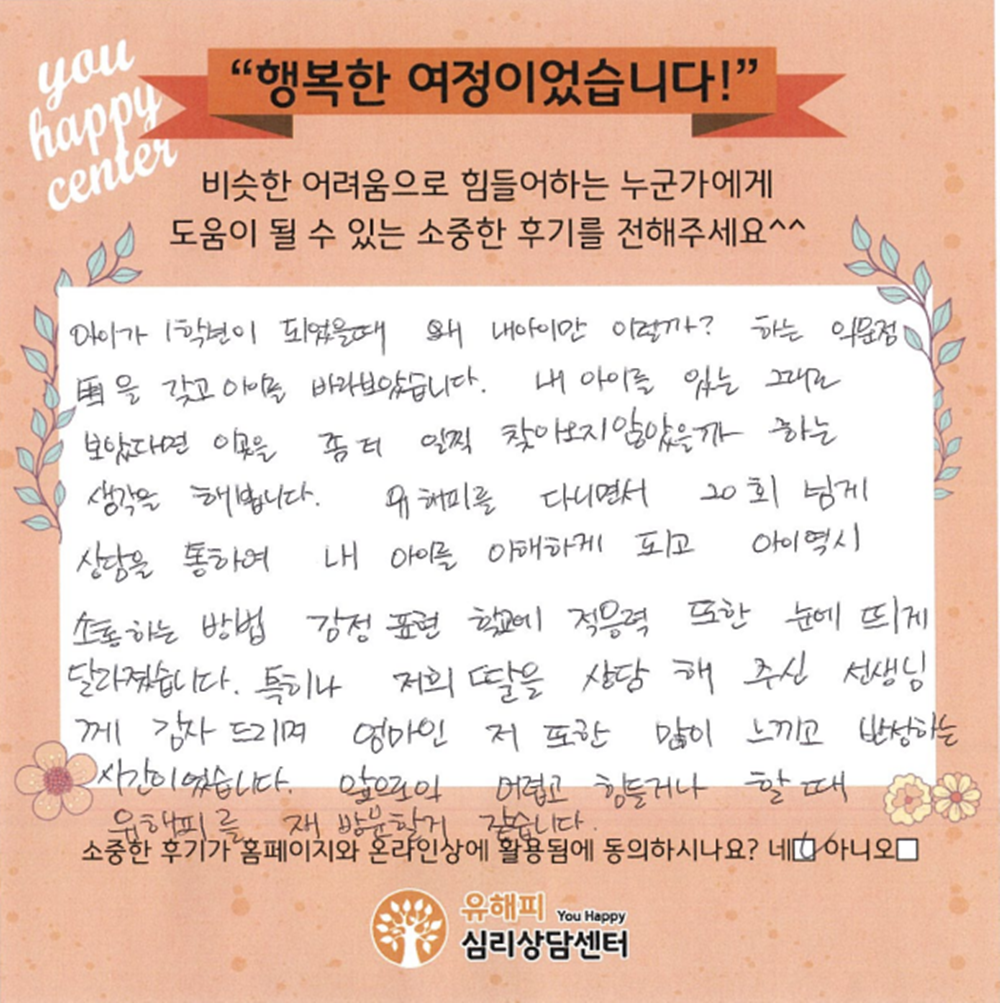 you
happy
center
“행복한 여정이었습니다!”
비슷한 어려움으로 힘들어하는 누군가에게
도움이 될 수 있는 소중한 후기를 전해주세요^^
아이가 1학년이 되었을때 왜 내아이만 이럴까? 하는 의문점
을 갖고 아이를 바라보았습니다. 내 아이를 있는 그대로
보았다면 이곳을 좀 더 일찍 찾아오지않았을까 하는
생각을 해봅니다. 유해피를 다니면서 20회 넘게
상담을 통하여 내 아이를 이해하게 되고 아이역시
소통하는 방법 감정 표현 학교에 적응력 또한 눈에 띄게
달라졌습니다. 특히나 저희 딸을 상담 해 주신 선생님
께 감사 드리며 엄마인 저 또한 많이 느끼고 반성하는
시간이였습니다. 앞으로의 어렵고 힘들거나 할 때
유해피를 재 방문할거 같습니다.
소중한 후기가 홈페이지와 온라인상에 활용됨에 동의하시나요? 네 아니오
유해피 You Happy
심리상담센터